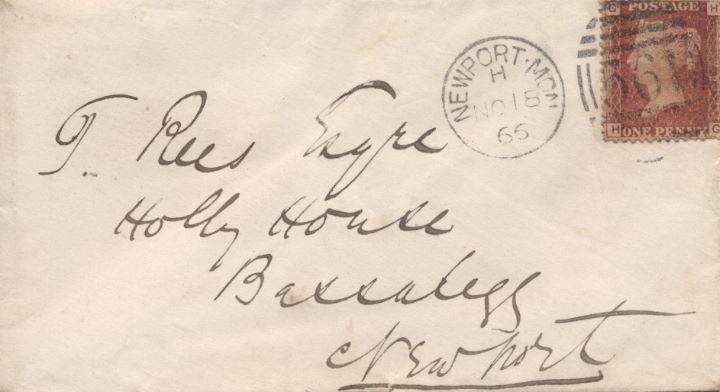 G POSTAGE H
NEWPORT·MON
H
NO 18
66
H ONE PENNY G
T. Rees Esqre
Holly House
Bassalegg
Newport